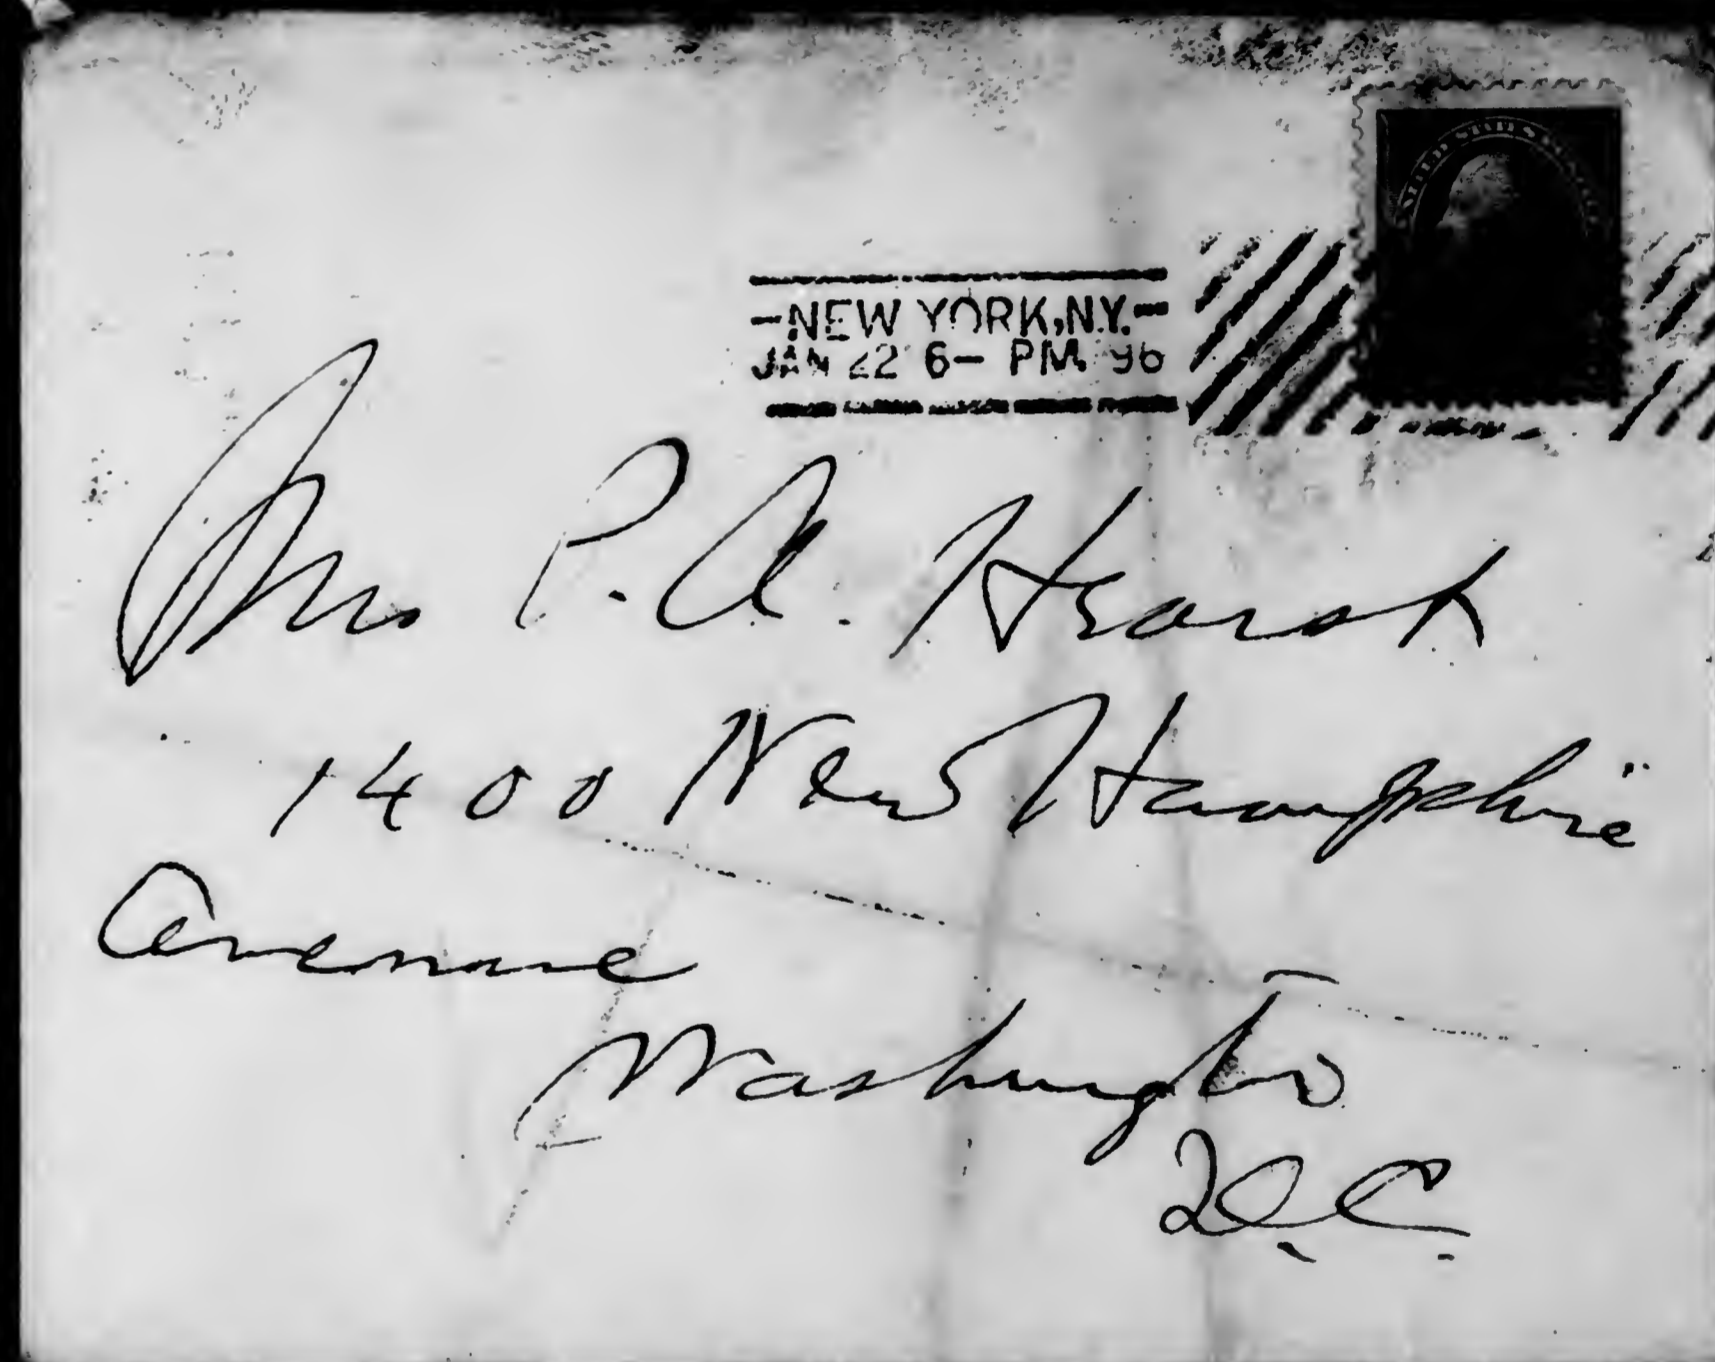 UNITED STATES
-NEW YORK, N.Y.-
JAN 22 6- PM. 96
Mrs P. A. Hearst
1400 New Hampshire
Avenue
Washington
D.C.